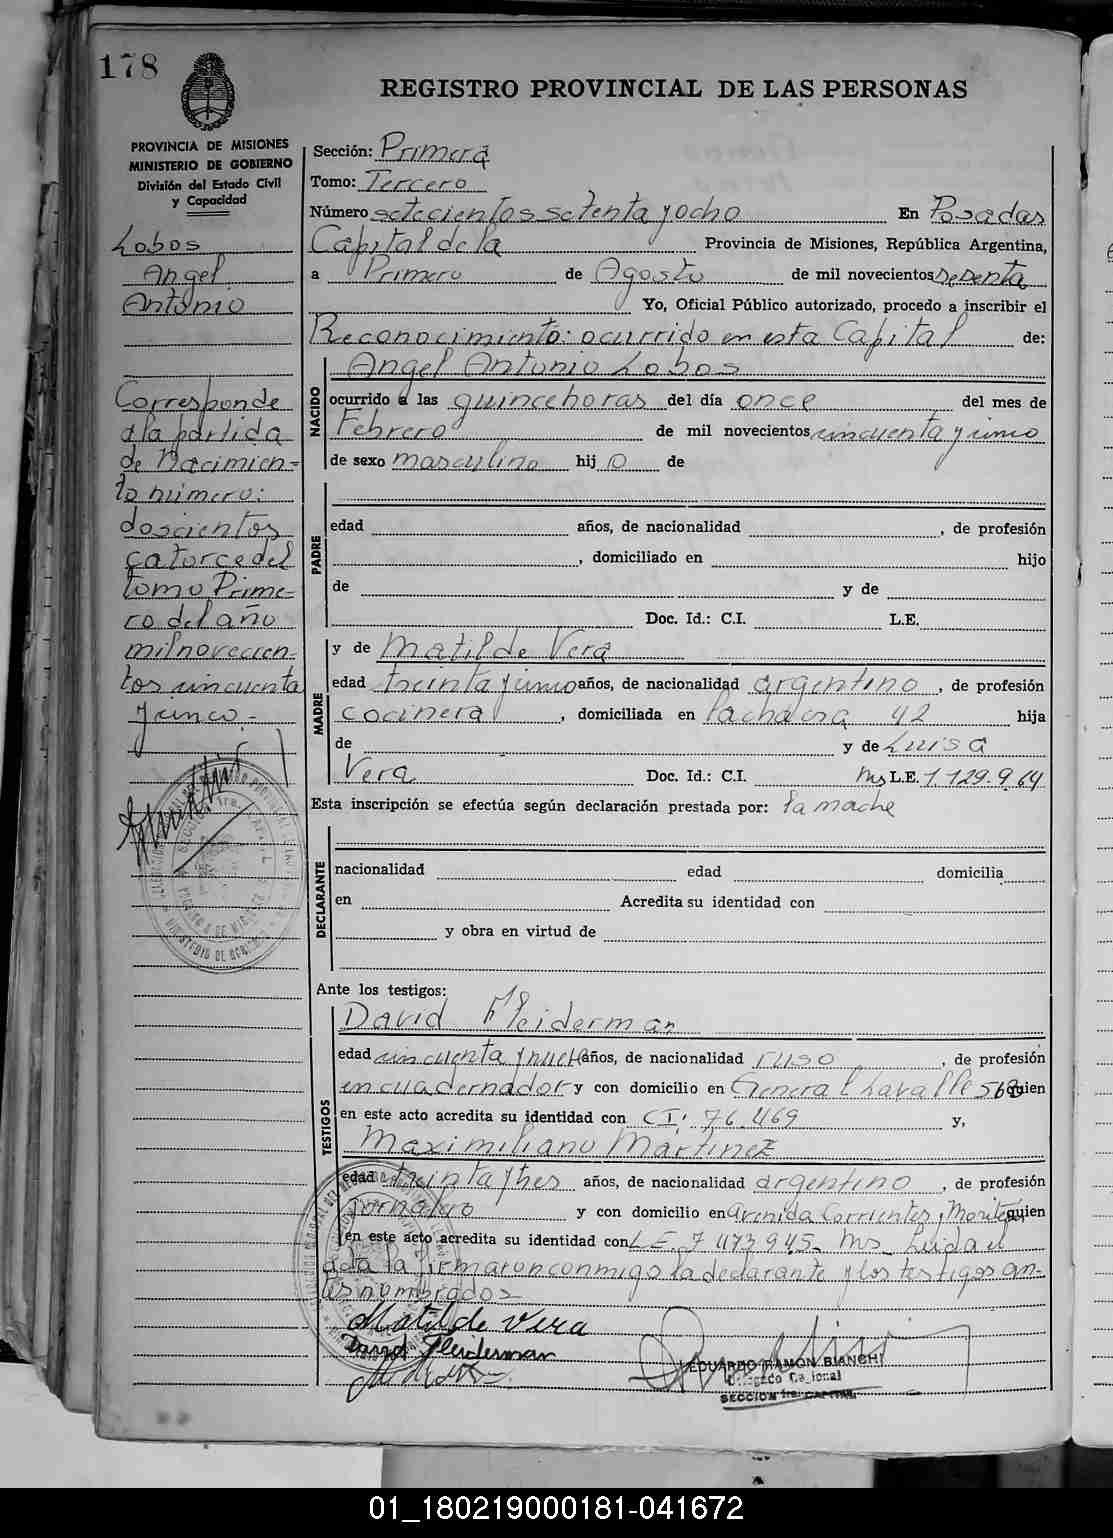 178
REGISTRO PROVINCIAL DE LAS PERSONAS
PROVINCIA DE MISIONES
MINISTERIO DE GOBIERNO
División del Estado Civil
y Capacidad
Lobos
Angel
Antonio
Corresponde
a la partida
de Nacimien-
to número:
doscientos
catorce del
tomo Prime-
ro del año
mil novecien-
tos cincuenta
y unco-
Sección: Primera
Tomo: Tercero
Número setecientos setenta y ocho En Posadas
Capital de la Provincia de Misiones, República Argentina,
a Primero de Agosto de mil novecientos sesenta
Yo, Oficial Público autorizado, procedo a inscribir el
Reconocimiento: ocurrido en esta Capital de:
NACIDO
Angel Antonio Lobos
ocurrido a las quince horas del día once del mes de
Febrero de mil novecientos cincuenta y unco
de sexo masculino hijo de
PADRE
edad años, de nacionalidad , de profesión
, domiciliado en hijo
de y de
Doc. Id.: C.I. L.E.
MADRE
y de Matilde Vera
edad treinta y unco años, de nacionalidad argentino , de profesión
cocinera , domiciliada en 42 hija
de y de Luisa
Vera Doc. Id.: C.I. Ms L.E. 1.129.964
Esta inscripción se efectúa según declaración prestada por: la madre
DECLARANTE
nacionalidad edad domicilia
en Acredita su identidad con
y obra en virtud de
Ante los testigos:
TESTIGOS
David Fleiderman
edad cincuenta y nueve años, de nacionalidad ruso , de profesión
encuadernador y con domicilio en General Lavalle 568 quien
en este acto acredita su identidad con CI: 76.469 y,
Maximiliano Martinez
edad treinta y tres años, de nacionalidad argentino , de profesión
jornalero y con domicilio en avenida Corrientes y quien
en este acto acredita su identidad con L.E. 7.473.945- Ms- Leida el
acta la firmaron conmigo la declarante y los testigos an-
tes nombrados
Matilde Vera
David Fleiderman
EDUARDO RAMON BIANCHI
Delegado Seccional
SECCION 1ra. CAPITAL
01_180219000181-041672